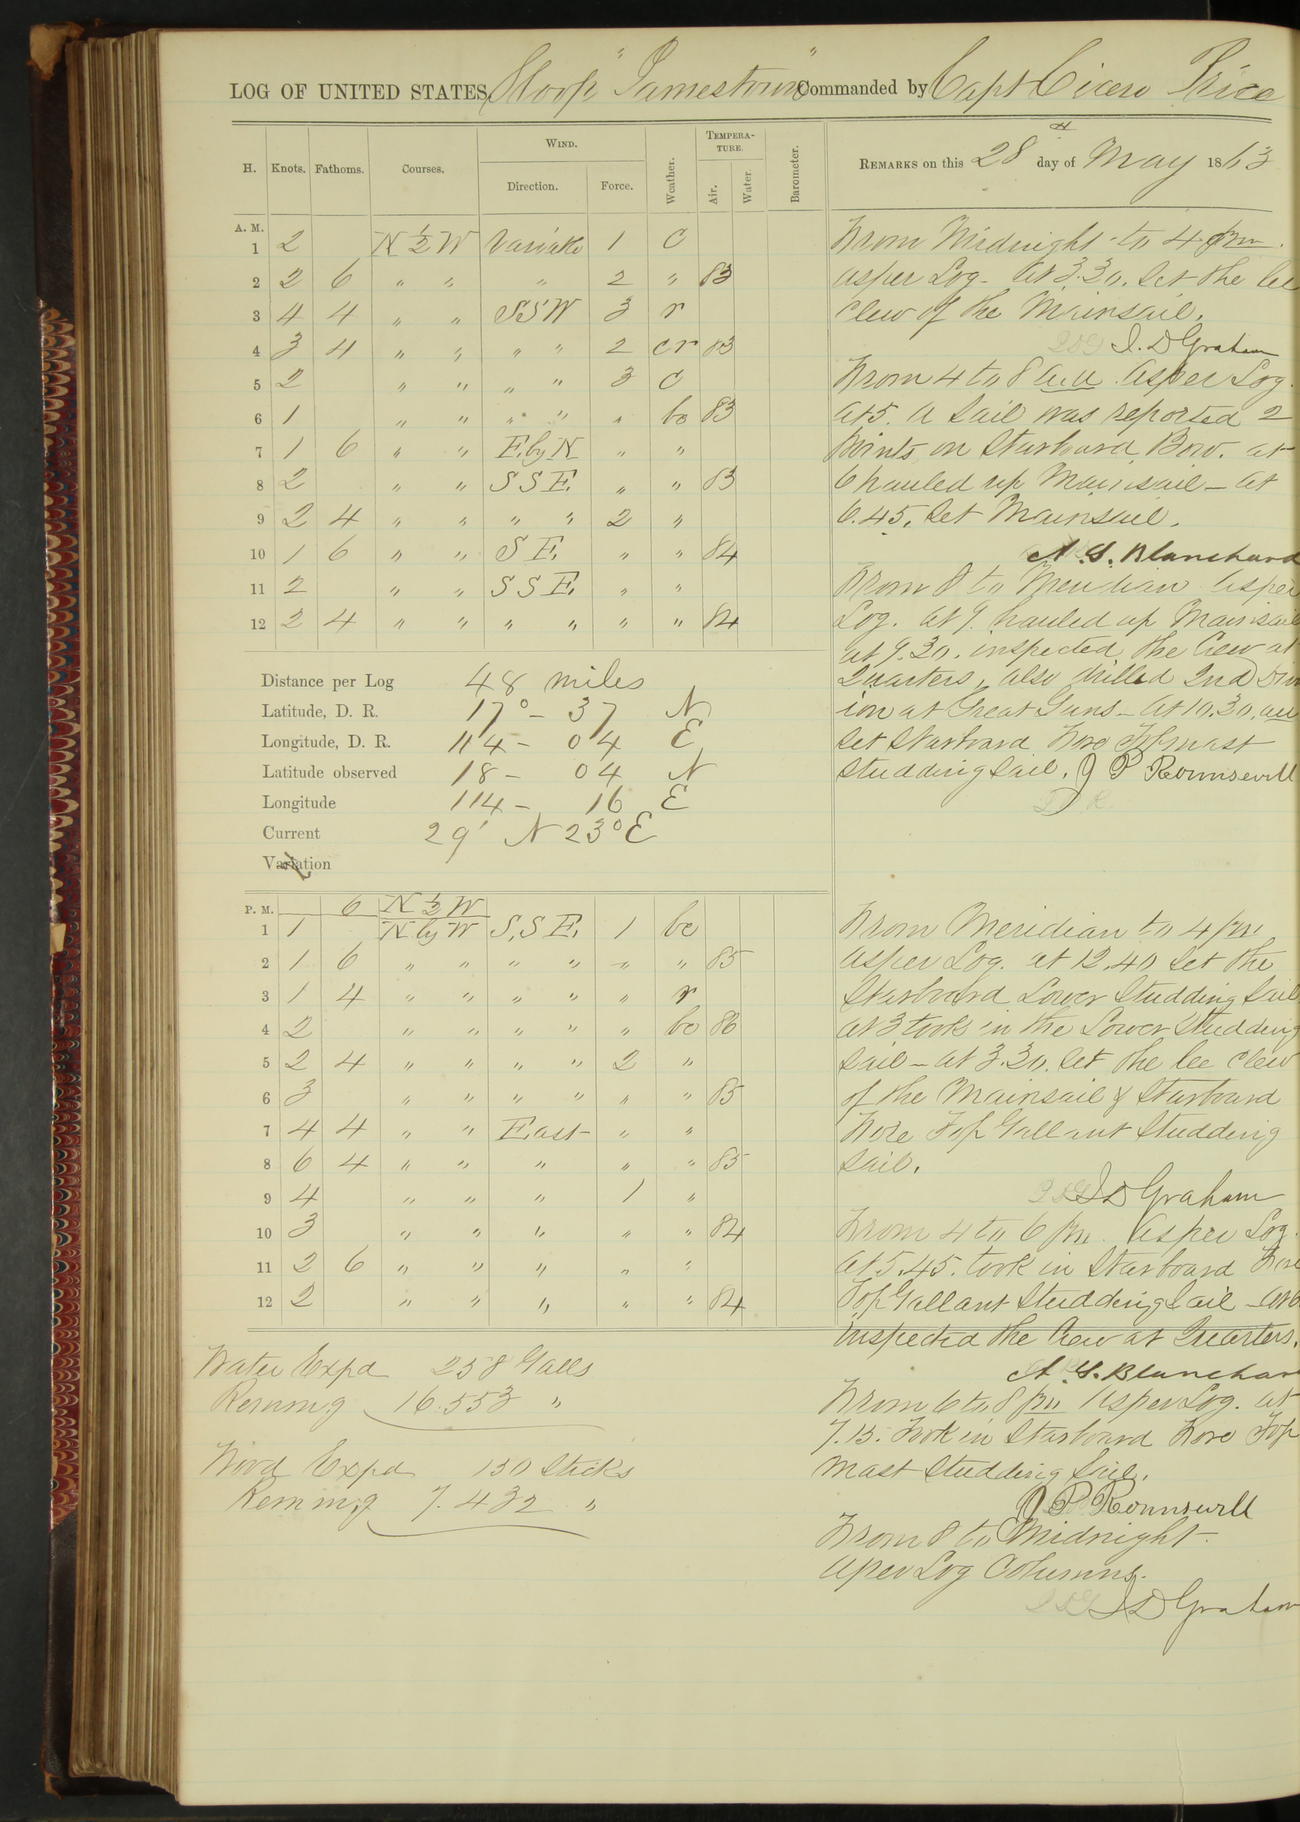 LOG OF UNITED STATES Sloop "Jamestown" Commanded by Capt Cicero Price
H. Knots. Fathoms. Courses. WIND. Direction. Force. Weather. TEMPERATURE. Air. Water. Barometer.
REMARKS on this 28th day of May 1863
A. M.
1 2 N ½ W Variable 1 c
2 2 6 " " " 2 " 83
3 4 4 " " SSW 3 r
4 3 4 " " " " 2 cr 83
5 2 " " " " 3 c
6 1 " " " " " bc 83
7 1 6 " " E. by N " "
8 2 " " SSE. " " 83
9 2 4 " " " " 2 "
10 1 6 " " SE. " " 84
11 2 " " SSE. " "
12 2 4 " " " " " " 84
Distance per Log 48 miles
Latitude, D. R. 17° - 37 N
Longitude, D. R. 114 - 04 E
Latitude observed 18 - 04 N
Longitude 114 - 16 E
Current 29' N 23° E
Variation
P. M.
6 N ½ W
1 1 N by W S.SE. 1 bc
2 1 6 " " " " " " 85
3 1 4 " " " " " r
4 2 " " " " " bc 86
5 2 4 " " " " 2 "
6 3 " " " " " " 85
7 4 4 " " East " "
8 6 4 " " " " " 85
9 4 " " " 1 "
10 3 " " " " " 84
11 2 6 " " " " "
12 2 " " " " " 84
Water Expd 258 Galls
Remmg 16.553 "
Wood Expd 130 Sticks
Remmg 7.432 "
From Midnight to 4 am.
asper Log. At 3.30. Set the lee
clew of the Mainsail.
J. D Graham
From 4 to 8 a.m. asper Log.
at 5. a Sail was reported 2
points on Starboard Bow. at
6 hauled up Mainsail - at
6.45. Set Mainsail.
A. S. Blanchard
From 8 to Meridian asper
Log. at 9. hauled up Mainsail
at 9.30. inspected the Crew at
Quarters, also drilled 2nd Div
ion at Great Guns - at 10.30. am
Set Starboard Fore Topmast
Studding Sail. J P Rounsevill
From Meridian to 4 pm
asper Log. at 12.40 Set the
Starboard Lower Studding Sail
at 3 took in the Lower Studding
Sail - at 3.30. Set the lee clew
of the Mainsail & Starboard
Fore Top Gallant Studding
Sail.
J D Graham
From 4 to 6 pm. asper Log.
at 5.45. took in Starboard Fore
Top Gallant Studding Sail - at 6
inspected the Crew at Quarters.
A. S. Blanchar
From 6 to 8 pm asper Log. at
7.15. Took in Starboard Fore Top
mast Studding Sail.
J P Rounsevill
From 8 to Midnight.
aper Log Columns.
J D Graham